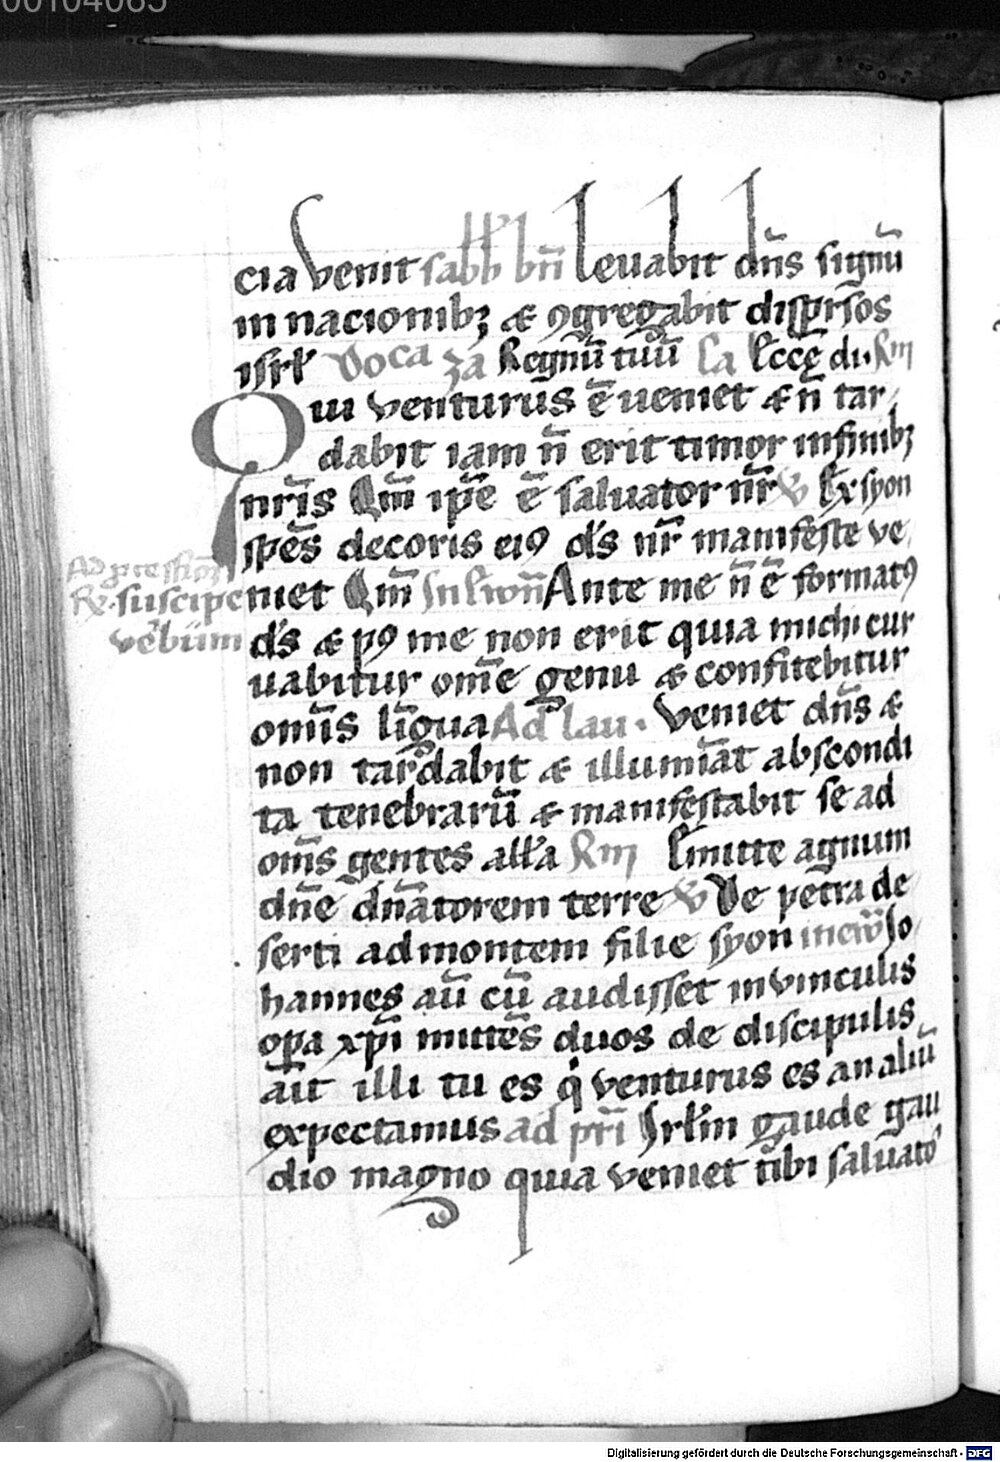 00104065
cia venit sabb bn̄ levabit dn̄s signū
in nacionibꝫ & ꝯgregabit disꝑsos
isrł Voca za Regnū tuū La Ecce di· Rm
Qui venturus ē ueniet & n̄ tar
dabit iam n̄ erit timor in finibꝫ
nr̄is Qm̄ ip̄e ē saluator nr̄ v Ex syon
spēs decoris eiꝯ ds̄ nr̄ manifeste ve
Ad ꝓcessionē
R. suscipe niet Qm̄ Ante me n̄ ē formatꝯ
vēbūm ds̄ & pꝯ me non erit quia michi cur
uabitur om̄e genu & confitebitur
omīs līgua Ad lau. Veniet dn̄s &
non tardabit & illumīat abscondi
ta tenebrarū & manifestabit se ad
om̄s gentes ałła Rm Emitte agnum
dn̄e dn̄atorem terre v De petra de
serti ad montem filie syon in ew̄ Jo
hannes aū cū audisset in vinculis
oꝑa xp̄i mittēs duos de discipulis
ait illi tu es q̇ venturus es an aliū
expectamus ad pr̄i Jrłm gaude gau
dio magno quia veniet tibi saluato
Digitalisierung gefördert durch die Deutsche Forschungsgemeinschaft - DFG